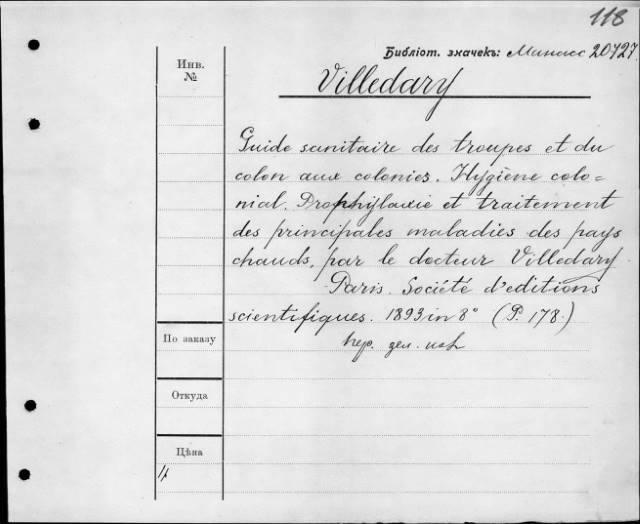 118
Библіот. значекъ: Манасс 20727.
Инв.
№
Villedary
Guide sanitaire des troupes et du
colon aux colonies. Hygiène colo=
nial. Prophylaxie et traitement
des principales maladies des pays
chauds, par le docteur Villedary
Paris. Société d'editions
scientifiques. 1893 in 8° (P. 178.)
По заказу
пер. зел.
Откуда
Цѣна